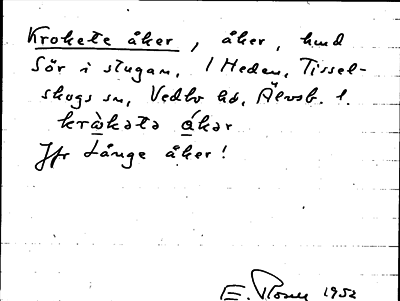 Krokete åker, åker, hmd
Sör i stugan, 1 Heden, Tissel-
skogs sn, Vedbo hd, Älvsb. l.
krὼkətə ákər
Jfr Långe åker!
E. 1952